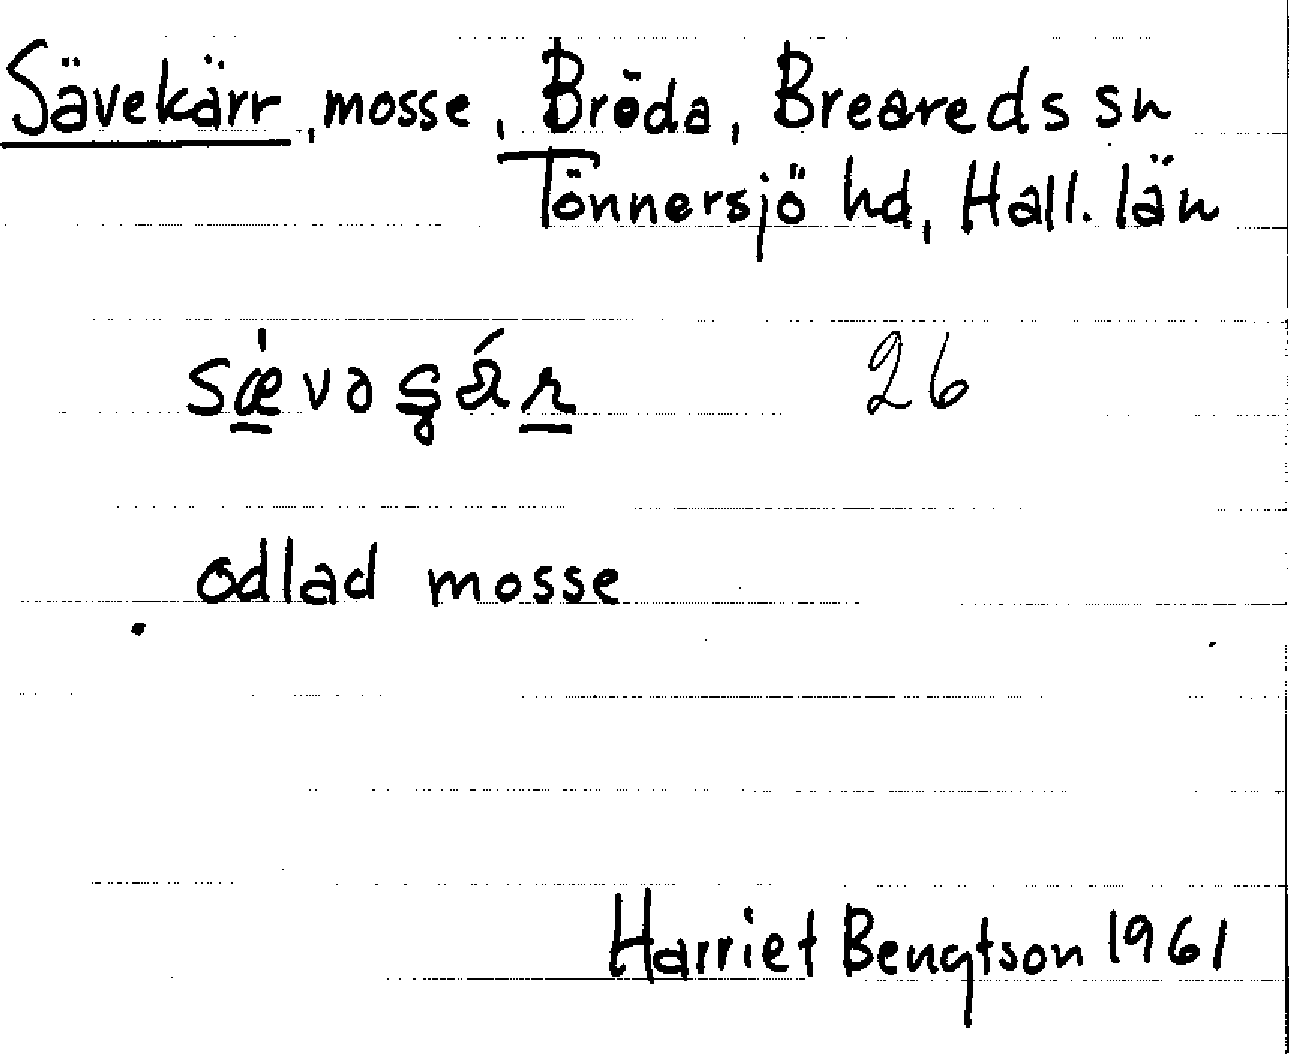 Sävekärr, mosse, Bröda, Breareds sn
Tönnersjö hd, Hall. län
26
odlad mosse
Harriet Bengtson 1961